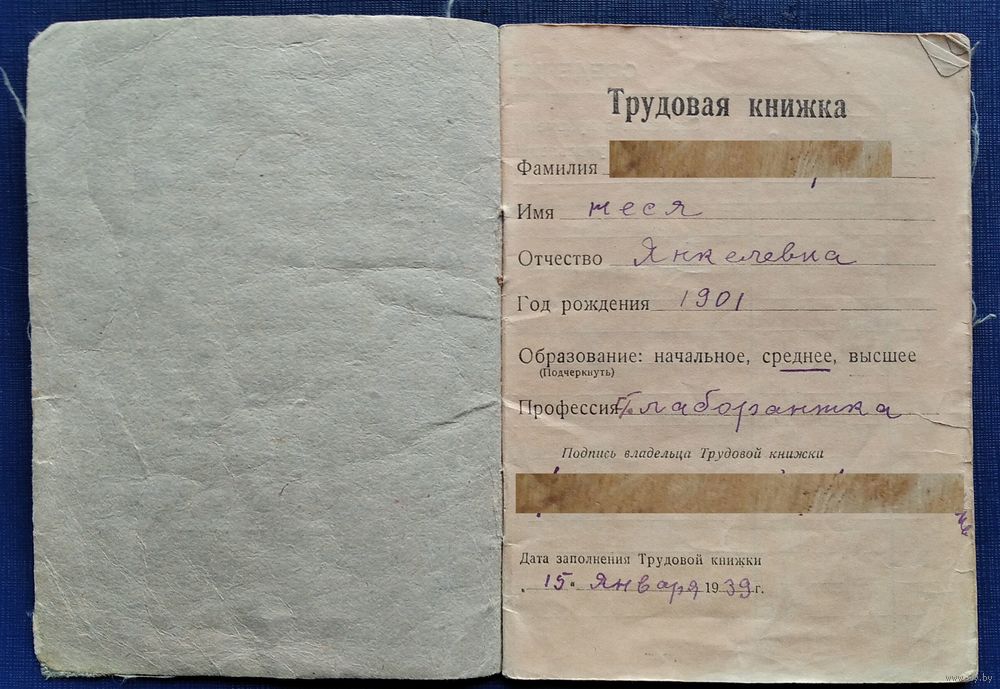 Трудовая книжка
Фамилия
Имя Песя
Отчество Янкелевна
Год рождения 1901
Образование: начальное, среднее, высшее
(Подчеркнуть)
Профессия лаборантка
Подпись владельца Трудовой книжки
Дата заполнения Трудовой книжки
„15" Января 1939 г.